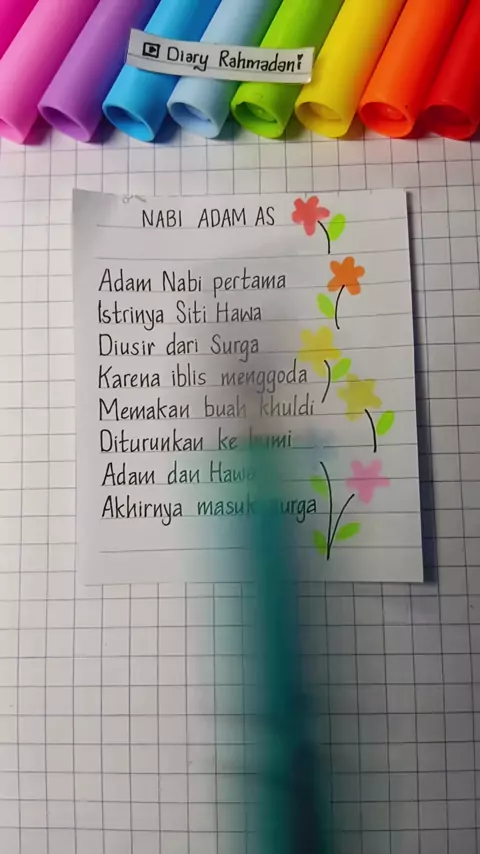 Diary Rahmadani
NABI ADAM AS
Adam Nabi pertama
Istrinya Siti Hawa
Diusir dari Surga
Karena iblis menggoda
Memakan buah khuldi
Diturunkan ke bumi
Adam dan Hawa
Akhirnya masuk surga